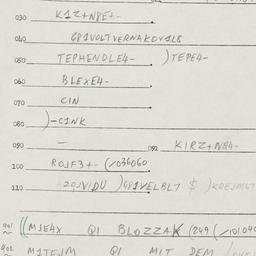 030 K1Z+NPE+-
040 GP1VOLTVERNAKOV1L8
050 TEPHENDLE4- )TEPE4-
060 BLEXE4-
070 CIN
080 )-C1NK
090 - 091 KIRZ+NP4-
100 ROJF3+- (/036060
110 20JVIDU )GP1VELBL7 $ )KREJMLT
401 ((MJE4X QI BLOZZAK (249 (/10104
402 M1TEJM QI MIT DEM